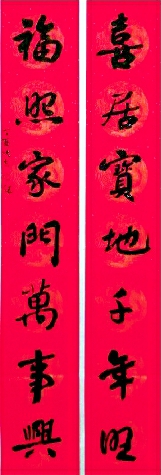 喜居寶地千年旺
福照家門萬事興